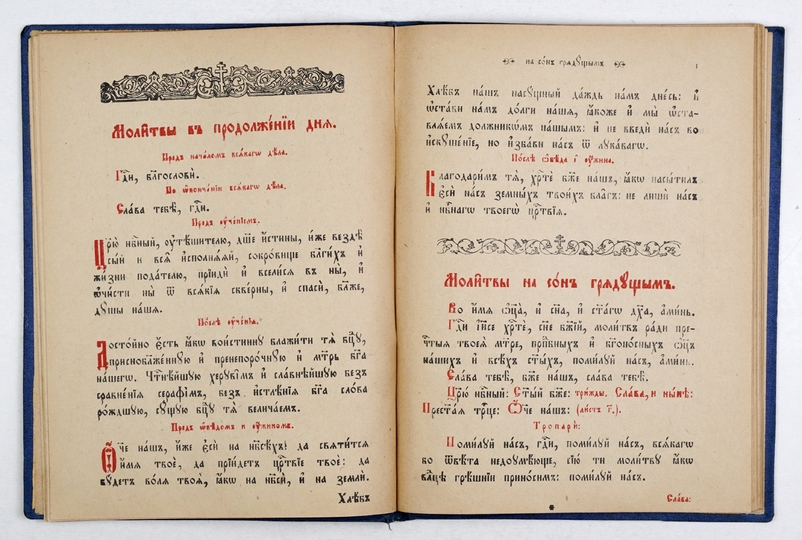 Моли̑твы въ продолже́нїи дня.
Предъ нача́ломъ вся́кагѡ дѣ́ла.
Гд҇и, бл҃гослови̑.
По ѡ҆конча́нїи вся́кагѡ дѣ́ла.
Сла́ва тебѣ̀, гд҇и.
Предъ ᲂу҆че́нїемъ.
Цр҃ю нб҇ный, ᲂу҆тѣ́шителю, дш҃е и҆́стины, и҆́же вездѣ̀
сы́й и҆ всѧ̑ и҆сполнѧ́ѧй, сокро́вище бл҃ги́хъ и҆
жи́зни пода́телю, прїидѝ и҆ всели́сѧ въ ны̀, и҆
ѡ҆чи́сти ны̀ ѿ всѧ́кїѧ скве́рны, и҆ спасѝ, бл҃же,
дꙋ́шы на́шѧ.
По́слѣ ᲂу҆че́нїѧ.
Досто́йно є҆́сть ꙗ҆́кѡ вои́стиннꙋ блажи́ти тѧ̀ бц҃ꙋ,
приснобл҃же́ннꙋю и҆ пренепоро́чнꙋю и҆ мт҃рь бг҃а
на́шегѡ. Чт҇нѣ́йшꙋю херꙋві̑мъ и҆ сла́внѣйшꙋю безъ
сравне́нїѧ серафі̑мъ, безъ и҆стлѣ́нїѧ бг҃а сло́ва
ро́ждшꙋю, сꙋ́щꙋю бц҃ꙋ тѧ̀ велича́емъ.
Предъ ѡ҆бѣ́домъ и ᲂу҆́жиномъ.
Ѻ҆́ч҃е на́шъ, и҆́же є҆сѝ на нб҃сѣ́хъ! да свѧти́тсѧ
и҆́мѧ твоѐ, да прїи́детъ цр҇твїе твоѐ: да
бꙋ́детъ во́лѧ твоѧ̀, ꙗ҆́кѡ на нб҃сѝ, и҆ на землѝ.
Хлѣ́бъ
на со́нъ грѧдꙋ́щымъ
Хлѣ́бъ на́шъ насꙋ́щный да́ждь на́мъ дне́сь: и҆
ѡ҆ста́ви на́мъ до́лги на́шѧ, ꙗ҆́коже и҆ мы̀ ѡ҆ста-
влѧ́емъ должникѡ́мъ на́шымъ: и҆ не введѝ на́съ во
и҆скꙋше́нїе, но и҆зба́ви на́съ ѿ лꙋка́вагѡ.
По́слѣ ѡ҆бѣ́да и҆ ᲂу҆́жина.
Благодари́мъ тѧ̀, хрт҇ѐ бж҃е на́шъ, ꙗ҆́кѡ насы́тилъ
є҆сѝ на́съ земны́хъ твои́хъ бла̑гъ: не лишѝ на́съ
и҆ нб҇нагѡ твоегѡ̀ цр҇твїѧ.
Моли̑твы на со́нъ грѧдꙋ́щымъ.
Во и҆́мѧ ѻ҆ц҃а̀, и҆ сн҃а, и҆ ст҃а́гѡ дх҃а, а҆ми́нь.
Гд҇и і҆и҃се хрт҇ѐ, сн҃е бж҃їй, моли́твъ ра́ди пре-
чт҇ыѧ твоеѧ̀ мт҃ре, прпⷣбныхъ и҆ бг҃оно́сныхъ ѻ҆ц҃ъ
на́шихъ и҆ всѣ́хъ ст҃ы́хъ, поми́лꙋй на́съ, а҆ми́нь.
Сла́ва тебѣ̀, бж҃е на́шъ, сла́ва тебѣ̀.
Цр҃ю нб҇ный: Ст҃ы́й бж҃е: три́жды. Сла́ва, и ны́нѣ:
Прест҃а́ѧ трⷪ҇це: Ѻ҆́ч҃е на́шъ:
Тропарѝ:
Поми́лꙋй на́съ, гд҇и, поми́лꙋй на́съ, всѧ́кагѡ
бо ѿвѣ́та недоꙋмѣ́юще, сїю́ ти моли́твꙋ ꙗ҆́кѡ
влⷣцѣ грѣ́шнїи прино́симъ: поми́лꙋй на́съ.
Сла́ва: